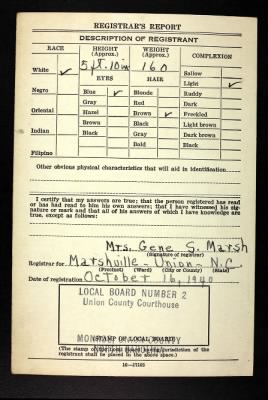 REGISTRAR'S REPORT
DESCRIPTION OF REGISTRANT
RACE
HEIGHT
(Approx.)
WEIGHT
(Approx.)
COMPLEXION
White ✓
5 ft. 10 in
160
Sallow
Light ✓
EYES
HAIR
Negro
Blue ✓
Blonde
Ruddy
Gray
Red
Dark
Oriental
Hazel
Brown ✓
Freckled
Brown
Black
Light brown
Indian
Black
Gray
Dark brown
Bald
Black
Filipino
Other obvious physical characteristics that will aid in identification
I certify that my answers are true; that the person registered has read
or has had read to him his own answers; that I have witnessed his sig-
nature or mark and that all of his answers of which I have knowledge are
true, except as follows:
Mrs. Gene S. Marsh
(Signature of registrar)
Registrar for Marshville - Union - N.C
(Precinct) (Ward) (City or County) (State)
Date of registration October 16, 1940
LOCAL BOARD NUMBER 2
Union County Courthouse
(STAMP OF LOCAL BOARD)
(The stamp of the Local Board having jurisdiction of the
registrant shall be placed in the above space.)
16—17105